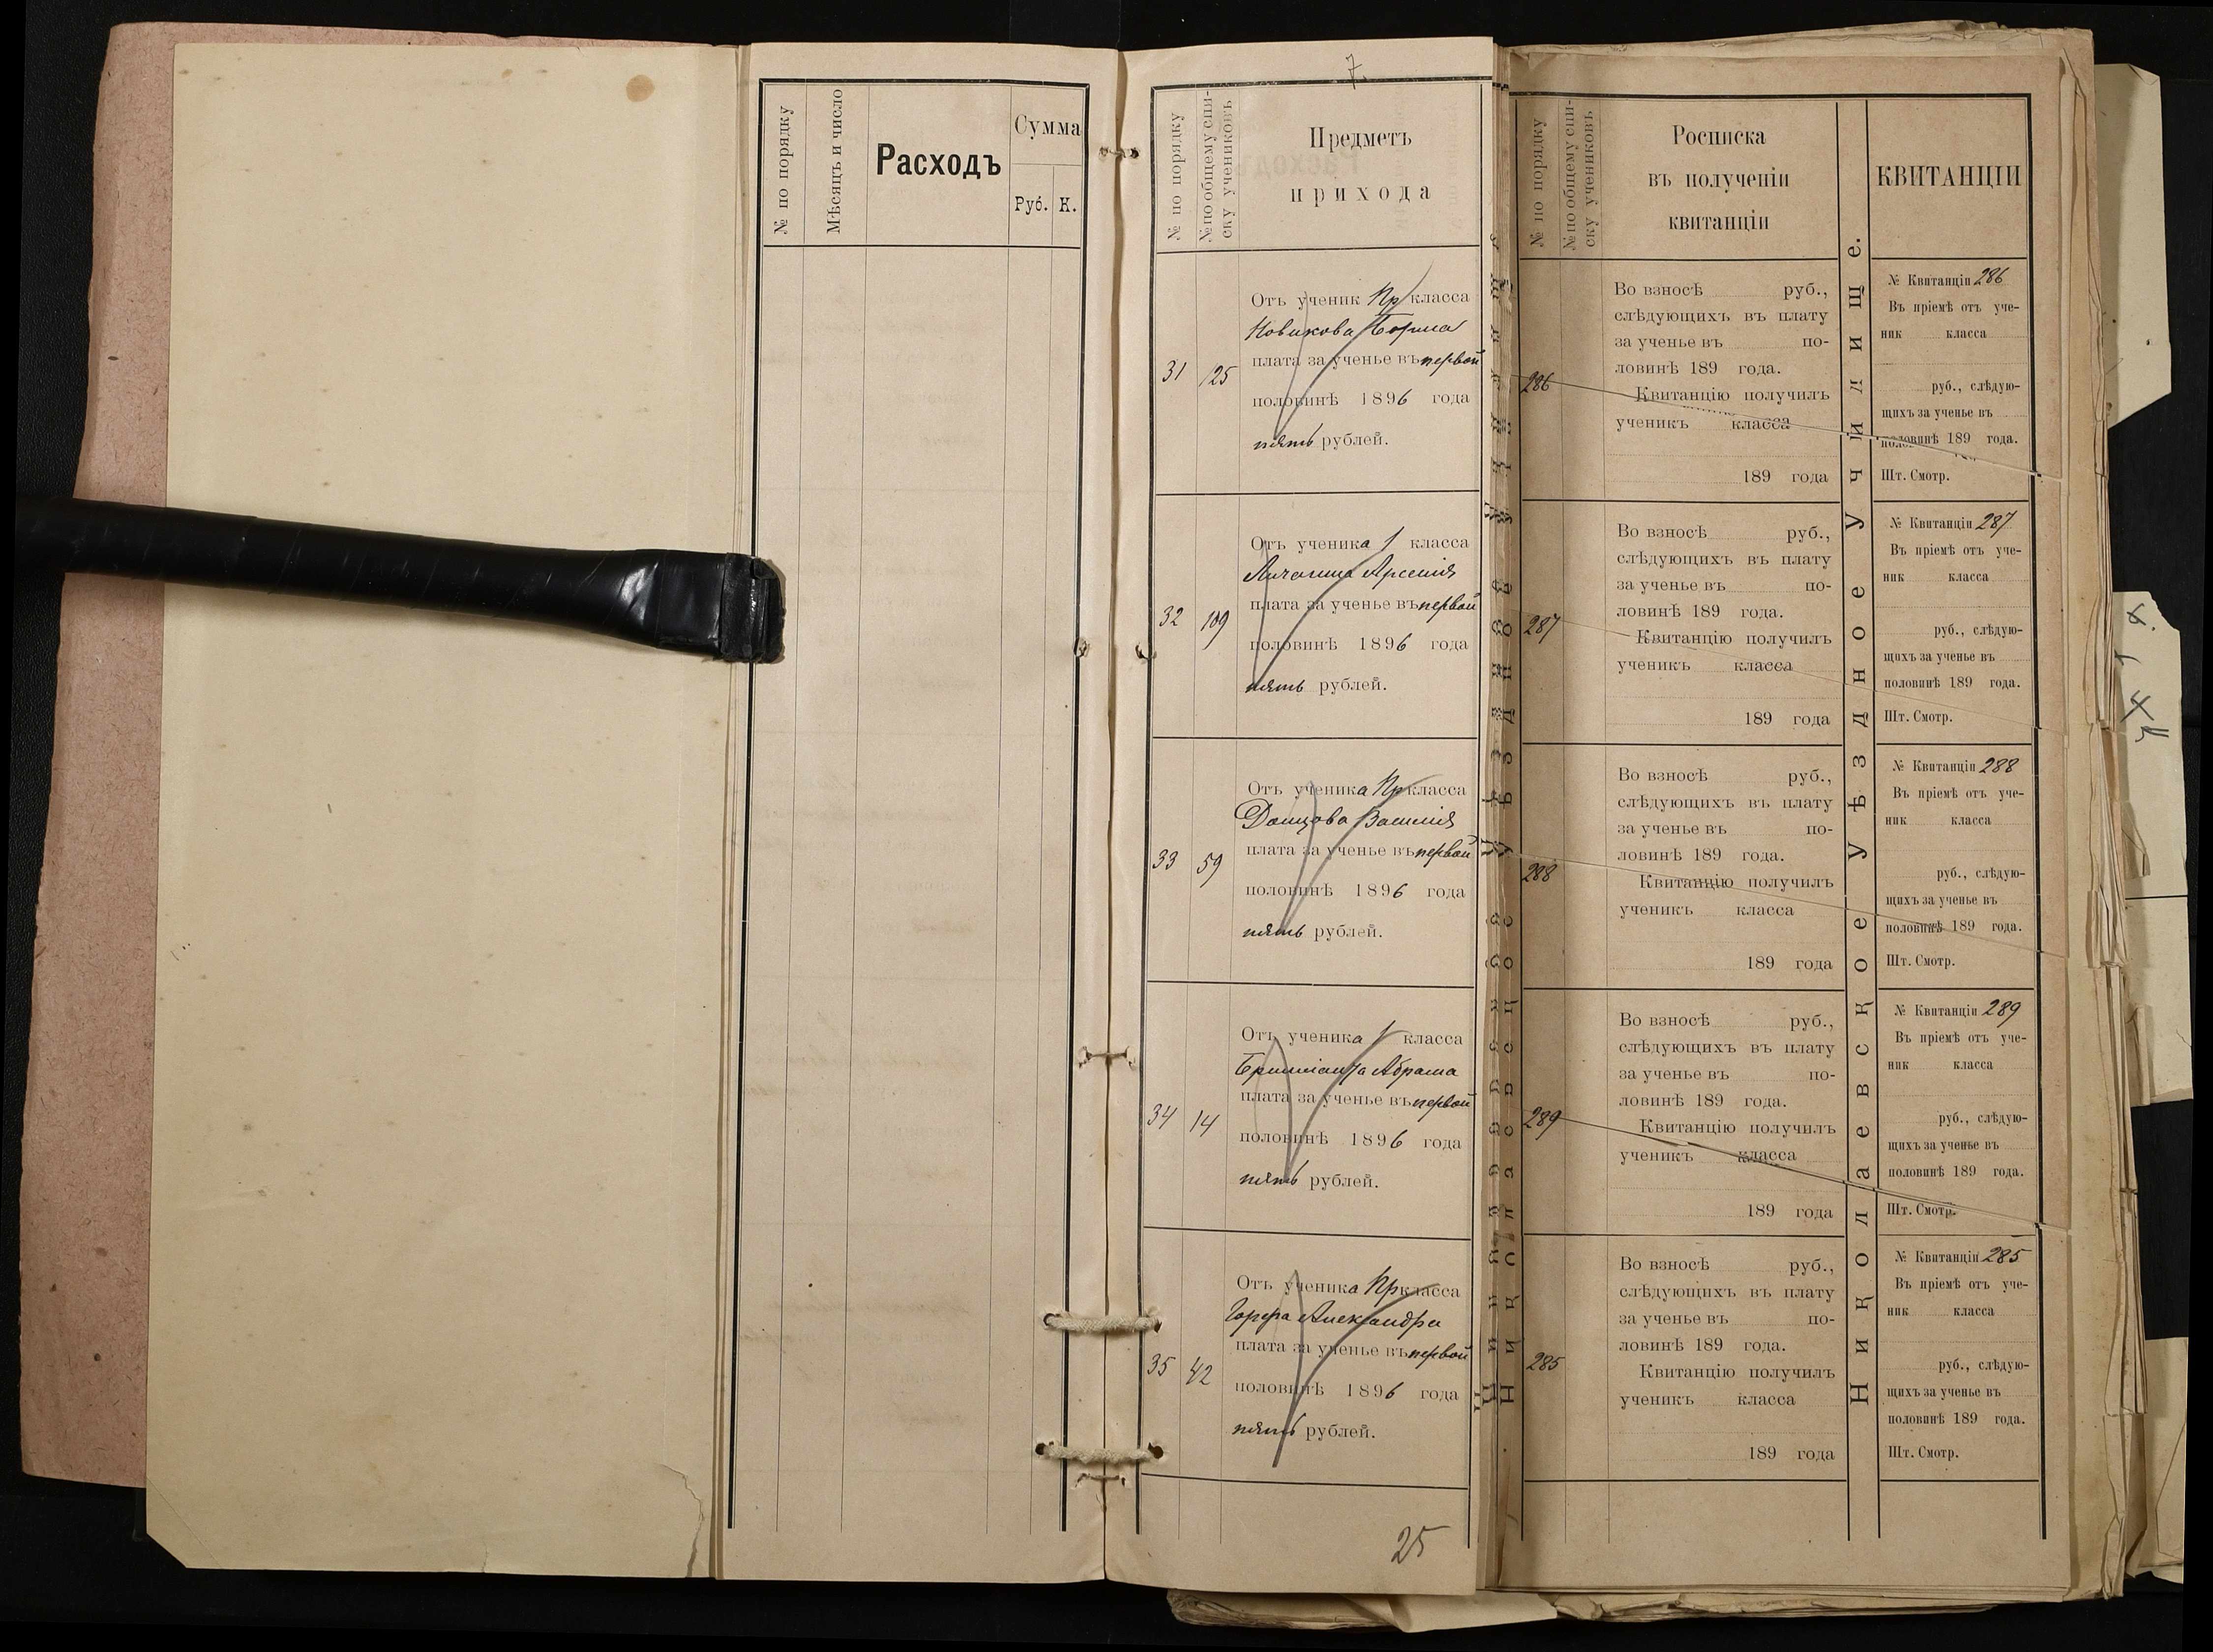 № по порядку
Мѣсяцъ и число
Расходъ
Сумма
Руб. К.
7.
№ по порядку
№ по общему спи-
ску учениковъ
Предметъ
прихода
31 125
Отъ ученик Пр класса
Новикова Бориса
плата за ученье въ первой
половинѣ 1896 года
пять рублей.
32 109
Отъ ученика 1 класса
Арсенія
плата за ученье въ первой
половинѣ 1896 года
пять рублей.
33 59
Отъ ученика Пр класса
Донцова Василія
плата за ученье въ первой
половинѣ 1896 года
пять рублей.
34 14
Отъ ученика 1 класса
Абрама
плата за ученье въ первой
половинѣ 1896 года
пять рублей.
35 42
Отъ ученика Пр класса
Александра
плата за ученье въ первой
половинѣ 1896 года
пять рублей.
25
№ по порядку
№ по общему спи-
ску учениковъ
Росписка
въ полученіи
квитанціи
286
Во взносѣ руб.,
слѣдующихъ въ плату
за ученье въ по-
ловинѣ 189 года.
Квитанцію получилъ
ученикъ класса
189 года
287
Во взносѣ руб.,
слѣдующихъ въ плату
за ученье въ по-
ловинѣ 189 года.
Квитанцію получилъ
ученикъ класса
189 года
288
Во взносѣ руб.,
слѣдующихъ въ плату
за ученье въ по-
ловинѣ 189 года.
Квитанцію получилъ
ученикъ класса
189 года
289
Во взносѣ руб.,
слѣдующихъ въ плату
за ученье въ по-
ловинѣ 189 года.
Квитанцію получилъ
ученикъ класса
189 года
285
Во взносѣ руб.,
слѣдующихъ въ плату
за ученье въ по-
ловинѣ 189 года.
Квитанцію получилъ
ученикъ класса
189 года
Николаевское Уѣздное Училище.
КВИТАНЦІИ
№ Квитанціи 286
Въ пріемѣ отъ уче-
ник класса
руб., слѣдую-
щихъ за ученье въ
половинѣ 189 года.
Шт. Смотр.
№ Квитанціи 287
Въ пріемѣ отъ уче-
ник класса
руб., слѣдую-
щихъ за ученье въ
половинѣ 189 года.
Шт. Смотр.
№ Квитанціи 288
Въ пріемѣ отъ уче-
ник класса
руб., слѣдую-
щихъ за ученье въ
половинѣ 189 года.
Шт. Смотр.
№ Квитанціи 289
Въ пріемѣ отъ уче-
ник класса
руб., слѣдую-
щихъ за ученье въ
половинѣ 189 года.
Шт. Смотр.
№ Квитанціи 285
Въ пріемѣ отъ уче-
ник класса
руб., слѣдую-
щихъ за ученье въ
половинѣ 189 года.
Шт. Смотр.